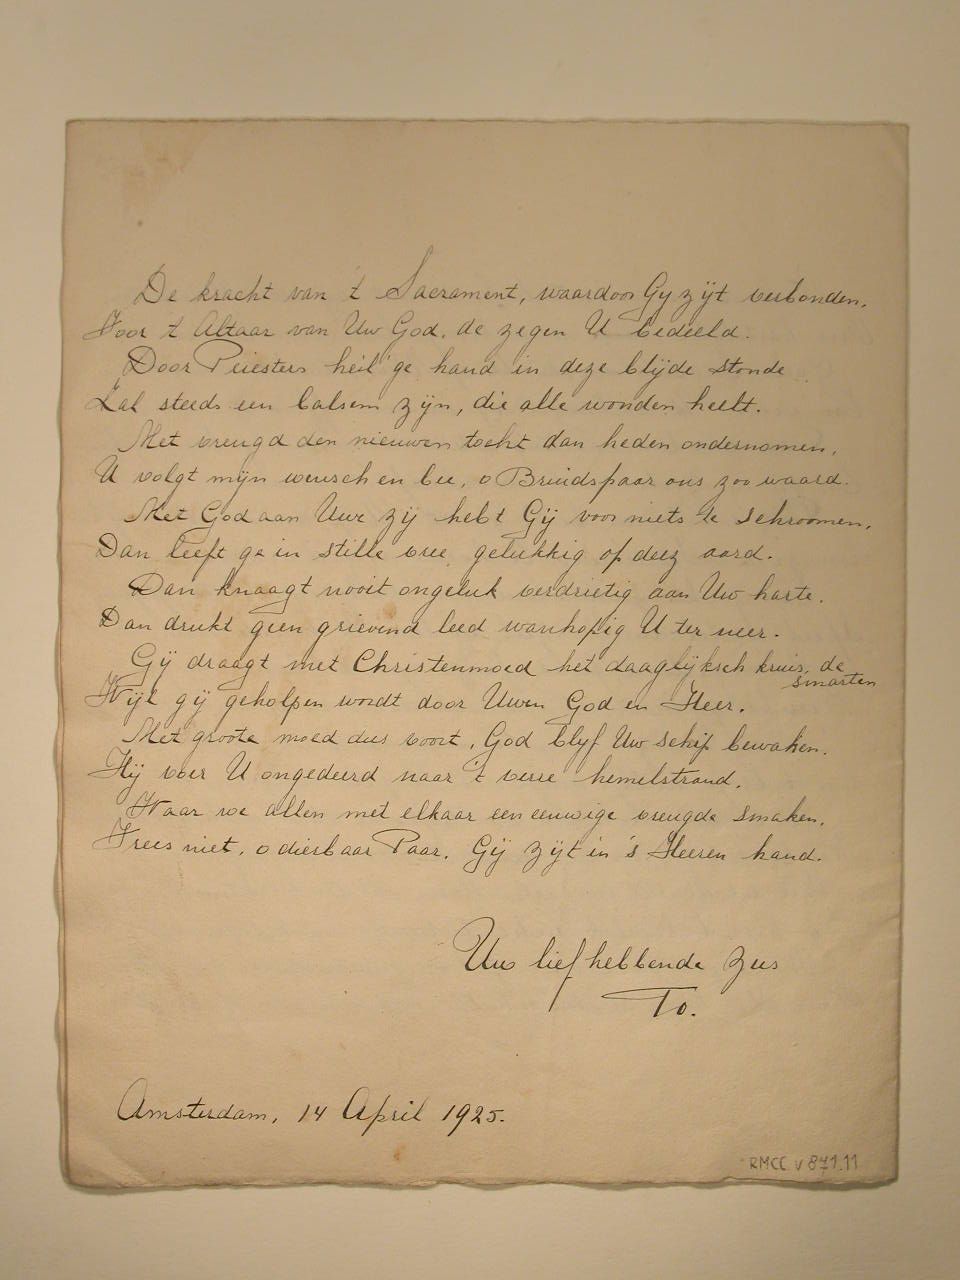 De kracht van 't Sacrament, waardoor Gy zyt verbonden,
Voor 't Altaar van Uw God, de zegen U bedeeld.
Door Priesters heil'ge hand in deze blijde stonde
Zal steeds een balsem zijn, die alle wonden heelt.
Met vreugd den nieuwen tocht dan heden ondernomen,
U volgt mijn wensch en bee, o Bruidspaar ons zoo waard.
Met God aan Uwe zij hebt Gij voor niets te schroomen,
Dan leeft ge in stille vree gelukkig op deez aard.
Dan knaagt nooit ongeluk verdrietig aan Uw harte.
Dan drukt geen grievend leed wanhopig U ter neer.
Gij draagt met Christenmoed het daaglijksch kruis, de smarten
Wijl gij geholpen wordt door Uwen God en Heer.
Met groote moed dus voort, God blyf Uw schip bewaken.
Hij voer U ongedeerd naar 't verre hemelstrand,
Waar we allen met elkaar een eeuwige vreugde smaken,
Vrees niet, o dierbaar Paar, Gij zijt in 's Heeren hand.
Uw liefhebbende zus
To.
Amsterdam, 14 April 1925.
RMCC v 871.11